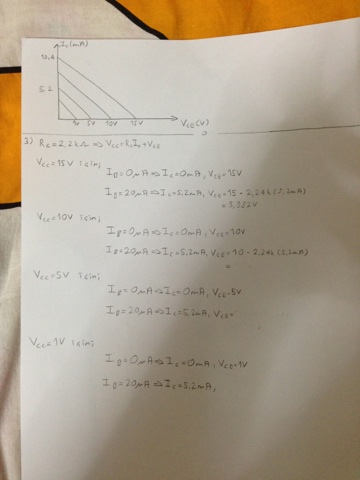 Ic(mA)
10,4
5,2
1V 5V 10V 15V
VCE(V)
3) Rc=2,2kΩ ⇒ Vcc=RcIc+VCE
Vcc=15V için;
IB=0μA ⇒ Ic=0mA, VCE=15V
IB=20μA ⇒ Ic=5,2mA, VCE=15-2,2k(5,2mA)
=3,352V
Vcc=10V için;
IB=0μA ⇒ Ic=0mA, VCE=10V
IB=20μA ⇒ Ic=5,2mA, VCE=10-2,2k(5,2mA)
=
Vcc=5V için;
IB=0μA ⇒ Ic=0mA, VCE=5V
IB=20μA ⇒ Ic=5,2mA, VCE=
Vcc=1V için;
IB=0μA ⇒ Ic=0mA, VCE=1V
IB=20μA ⇒ Ic=5,2mA,